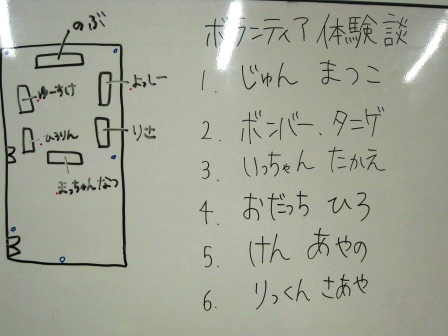 のぶ
よっしー
ゆーすけ
ひうりん
りさ
まっちゃん なつ
ボランティア 体験談
1. じゅん まつこ
2. ボンバー、タニゲ
3. いっちゃん たかえ
4. おだっち ひろ
5. けん あやの
6. りっくん さあや